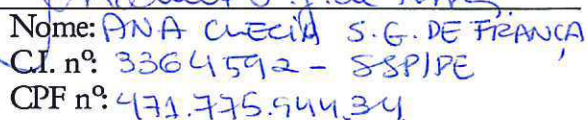 Nome: ANA CLECIA S. G. DE FRANCA
C.I. nº: 3364592 - SSP/PE
CPF nº: 471.775.944.34